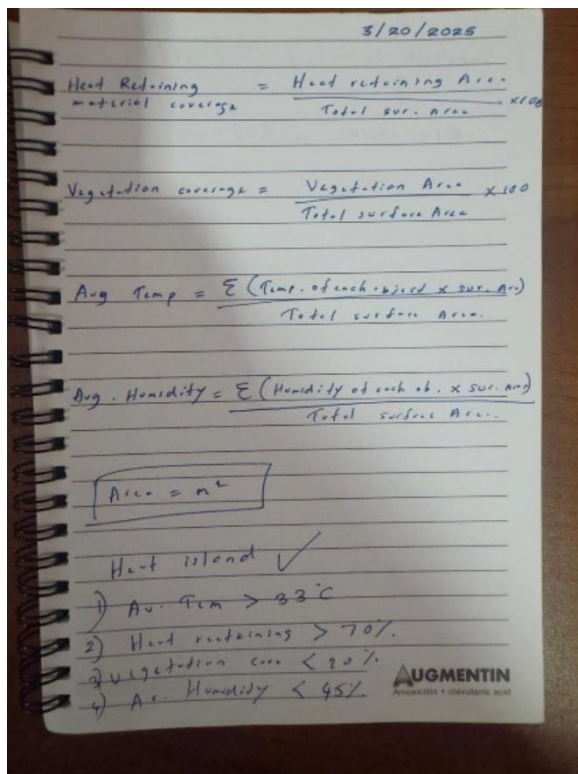 3/20/2025
Heat Retaining material coverage = Heat retaining Area / Total sur. Area ×100
Vegetation coverage = Vegetation Area / Total surface Area × 100
Avg Temp = Σ (Temp. of each object × sur. Are) / Total surface Area.
Avg. Humidity = Σ (Humidity of each ob. × sur. Area) / Total surface Area.
Area = m²
Heat island ✓
1) Av. Tem > 33°C
2) Heat reetaining > 70%.
3) Vegetation cove < 20%.
4) Av. Humidity < 45%.
AUGMENTIN
Amoxicillin • clavulanic acid